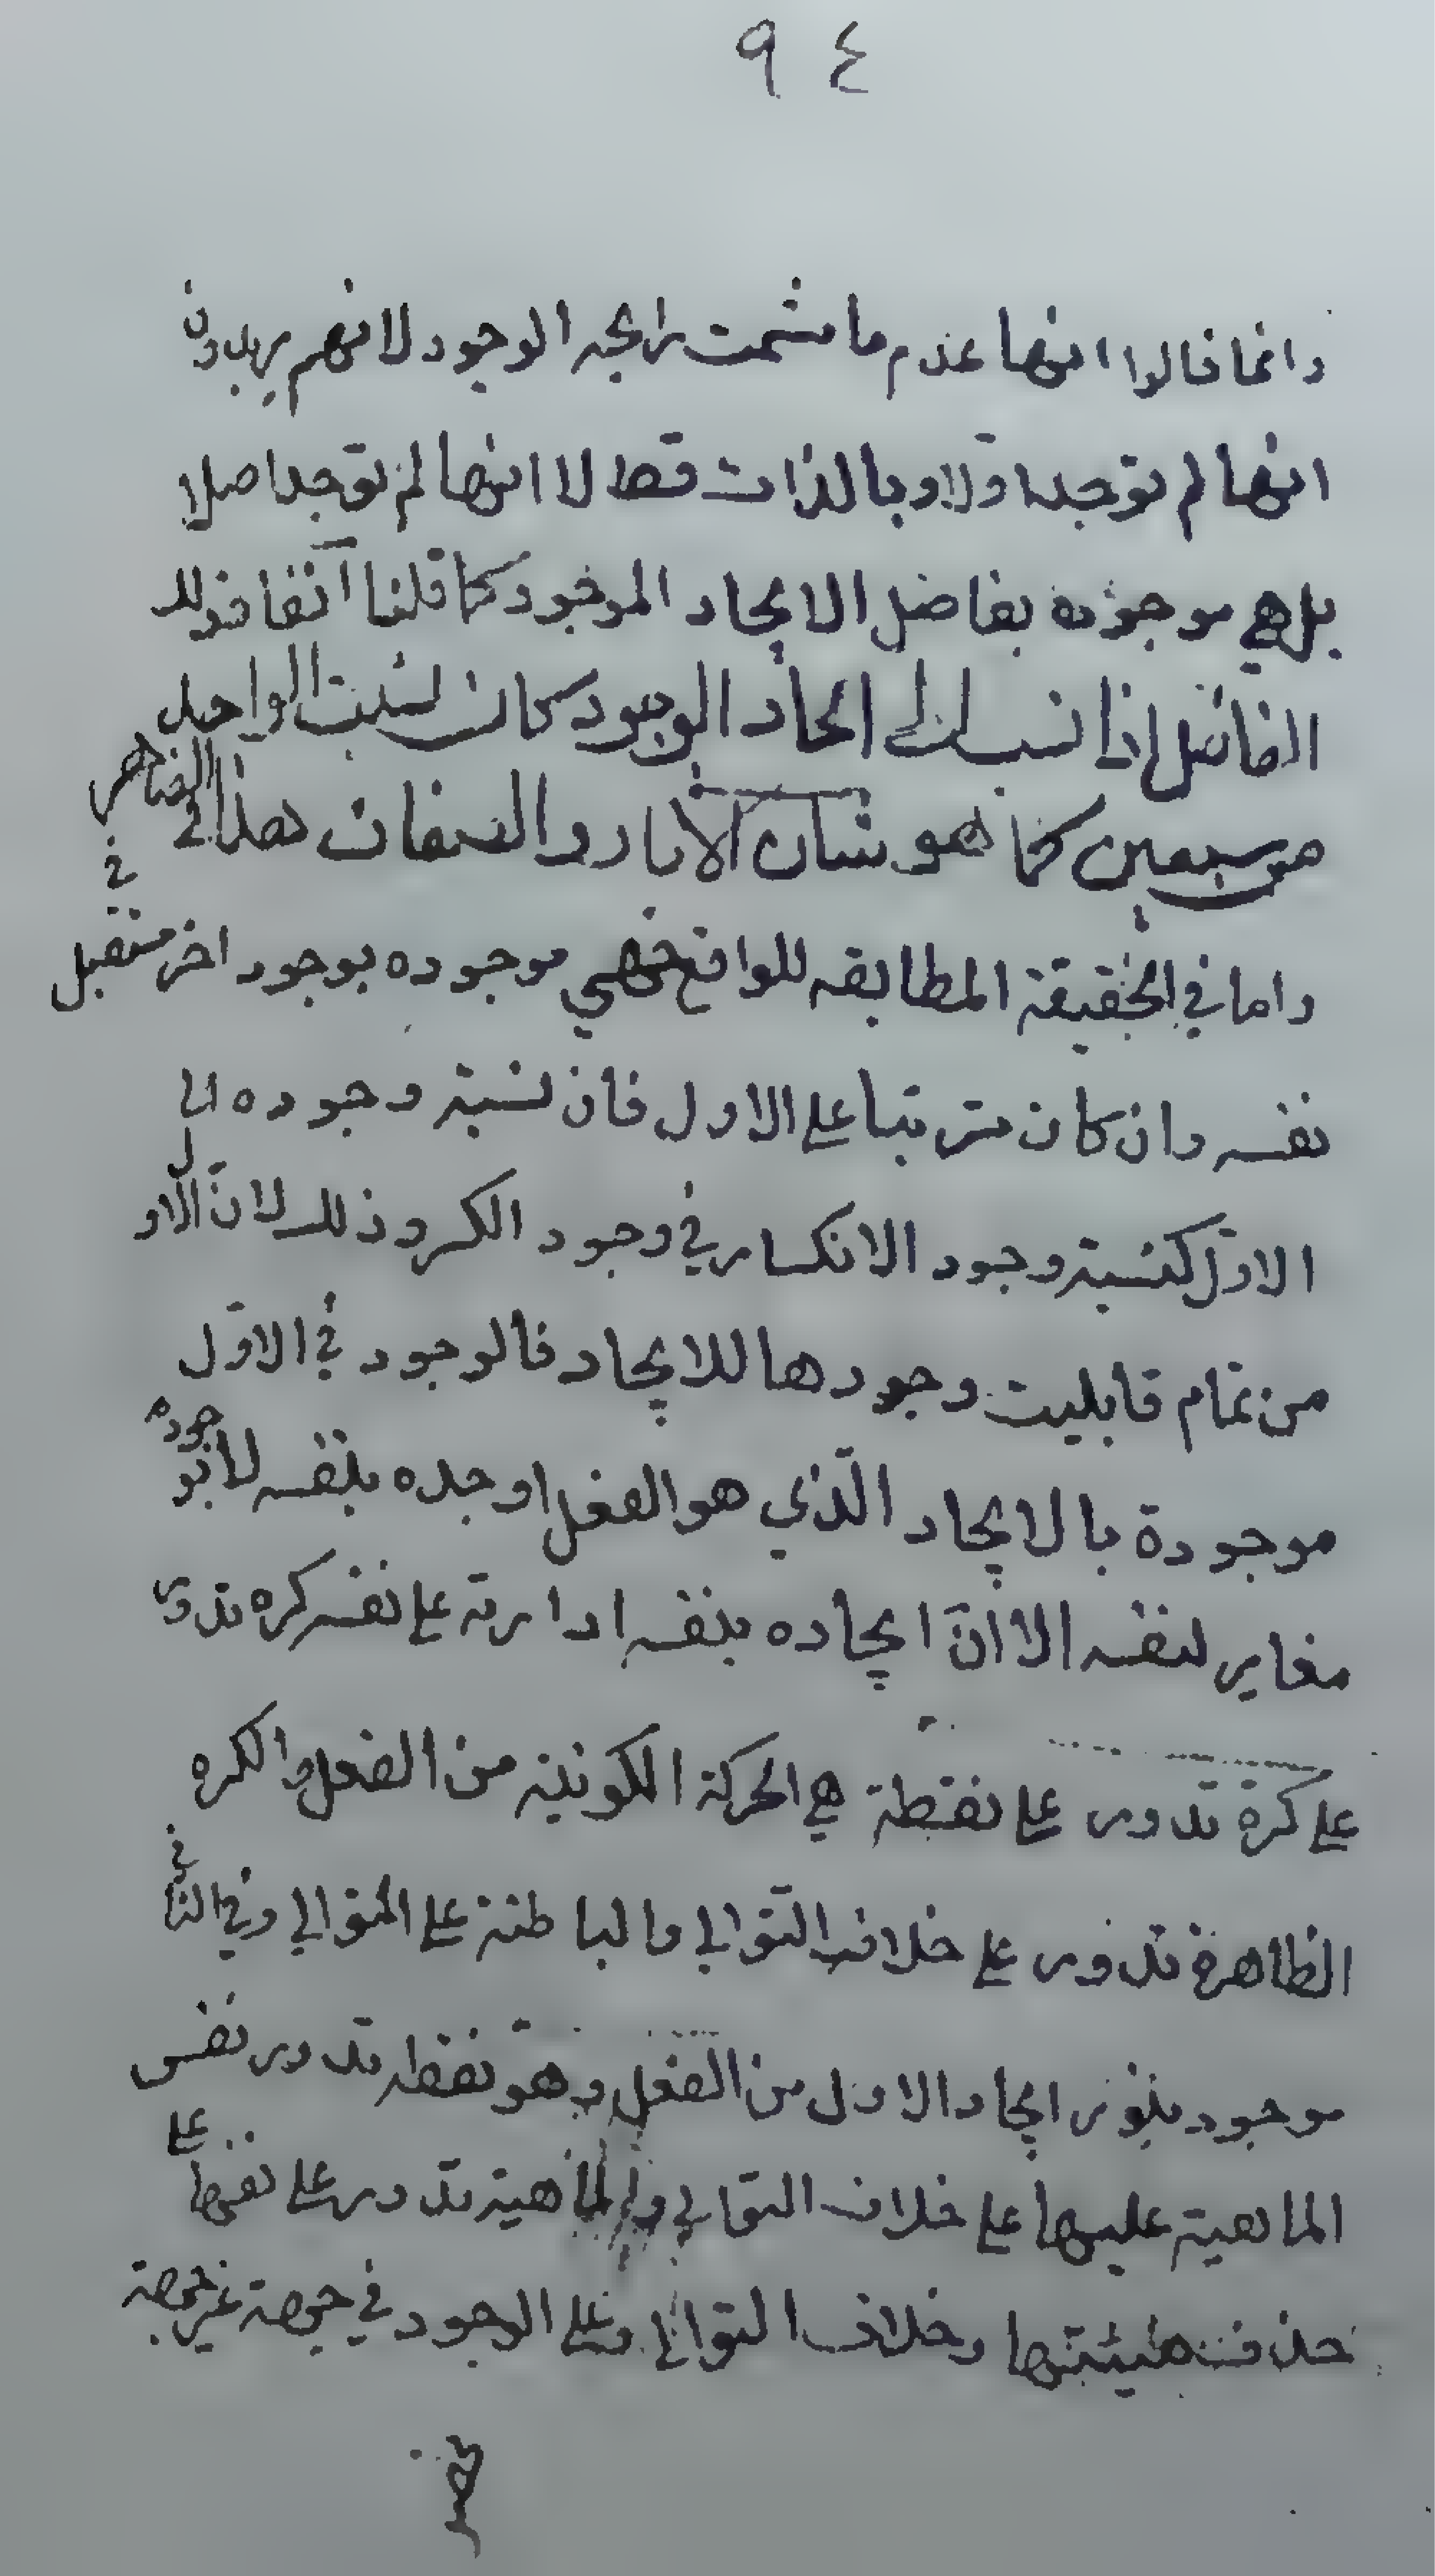 ٩٤
وانما قالوا انها عدم ما شمت رايحه الوجود لانهم يريدون
انها لم توجد اولا وبالذات قط لا انها لم توجد اصلا
بل هي موجوده بفاضل الايجاد الموجود كما قلنا آنفا فذلك
الفاضل اذا نسب الى ايجاد الوجود كان نسبت الواحد
من سبعين كما هو شان الآثار والصفات هذا في الظاهر
واما في الحقيقة المطابقه للواقع فهي موجوده بوجود اخر مستقبل في
نفسه وان كان مترتبا على الاول فان نسبة وجوده الى
الاول كنسبة وجود الانكسار في وجود الكسر وذلك لان الاول
من تمام قابليت وجودها للايجاد فالوجود في الاول
موجودة بالايجاد الذي هو الفعل اوجده بنفسه لا بوجود
مغاير لنفسه الا ان ايجاده بنفسه ادارته على نفسه كره تدور
على كرة تدور على نقطة هي الحركة الكونيه من الفعل والكره
الظاهرة تدور على خلاف التوالي والباطنة على التوالي وفي الثاني
موجود بنور ايجاد الاول من الفعل وهو نقطه تدور نفس
الماهية عليها على خلاف التوالي والماهية تدور على نفسها على
خلاف التوالي وعلى الوجود في جهة غير جهة